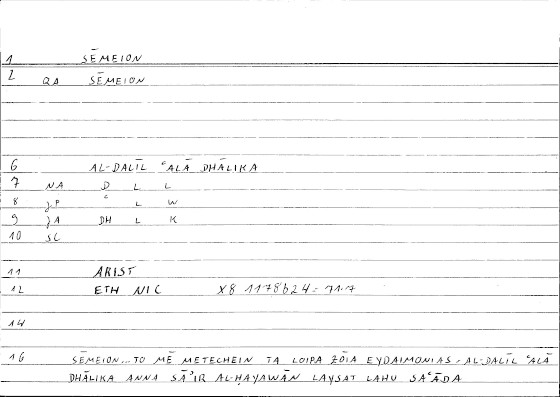 1 SĒMEION
2 QA SĒMEION
6 AL-DALĪL ʿALĀ DHĀLIKA
7 NA D L L
8 ʿ L W
9 DH L K
10 SL
11 ARIST
12 ETH NIC X8 1178b24 = 71.7
14
16 SĒMEION...TO MĒ METECHEIN TA LOIPA ZŌIA EYDAIMONIAS - AL-DALĪL ʿALĀ
DHĀLIKA ANNA SĀʾIR AL-ḤAYAWĀN LAYSAT LAHU SAʿĀDA